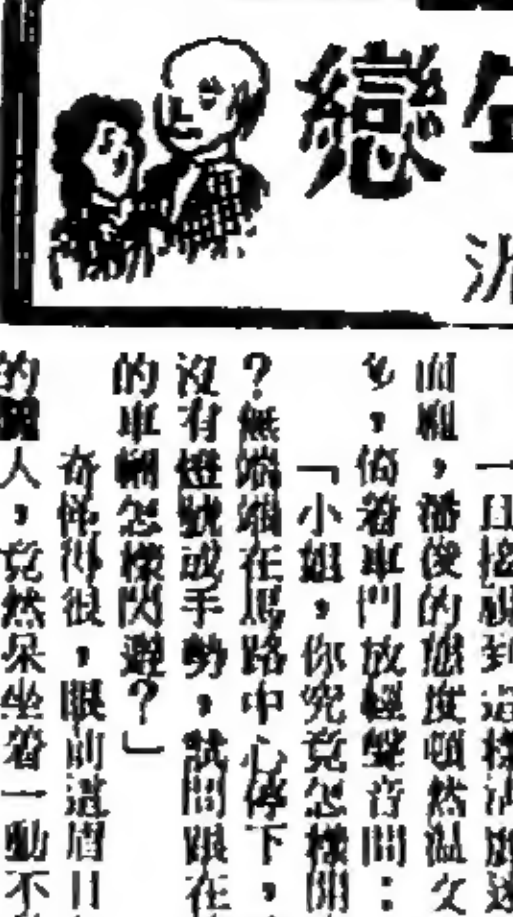 戀
一旦接觸到這樣清麗
面龐,潘俊的態度頓然溫文
多,倚着車門放輕聲音問:
「小姐,你究竟怎樣開
?無端端在馬路中心停下,
沒有燈號或手勢,試問跟在
的車輛怎樣閃避?」
奇怪得很,眼前這眉目
的人,竟然呆坐着一動不